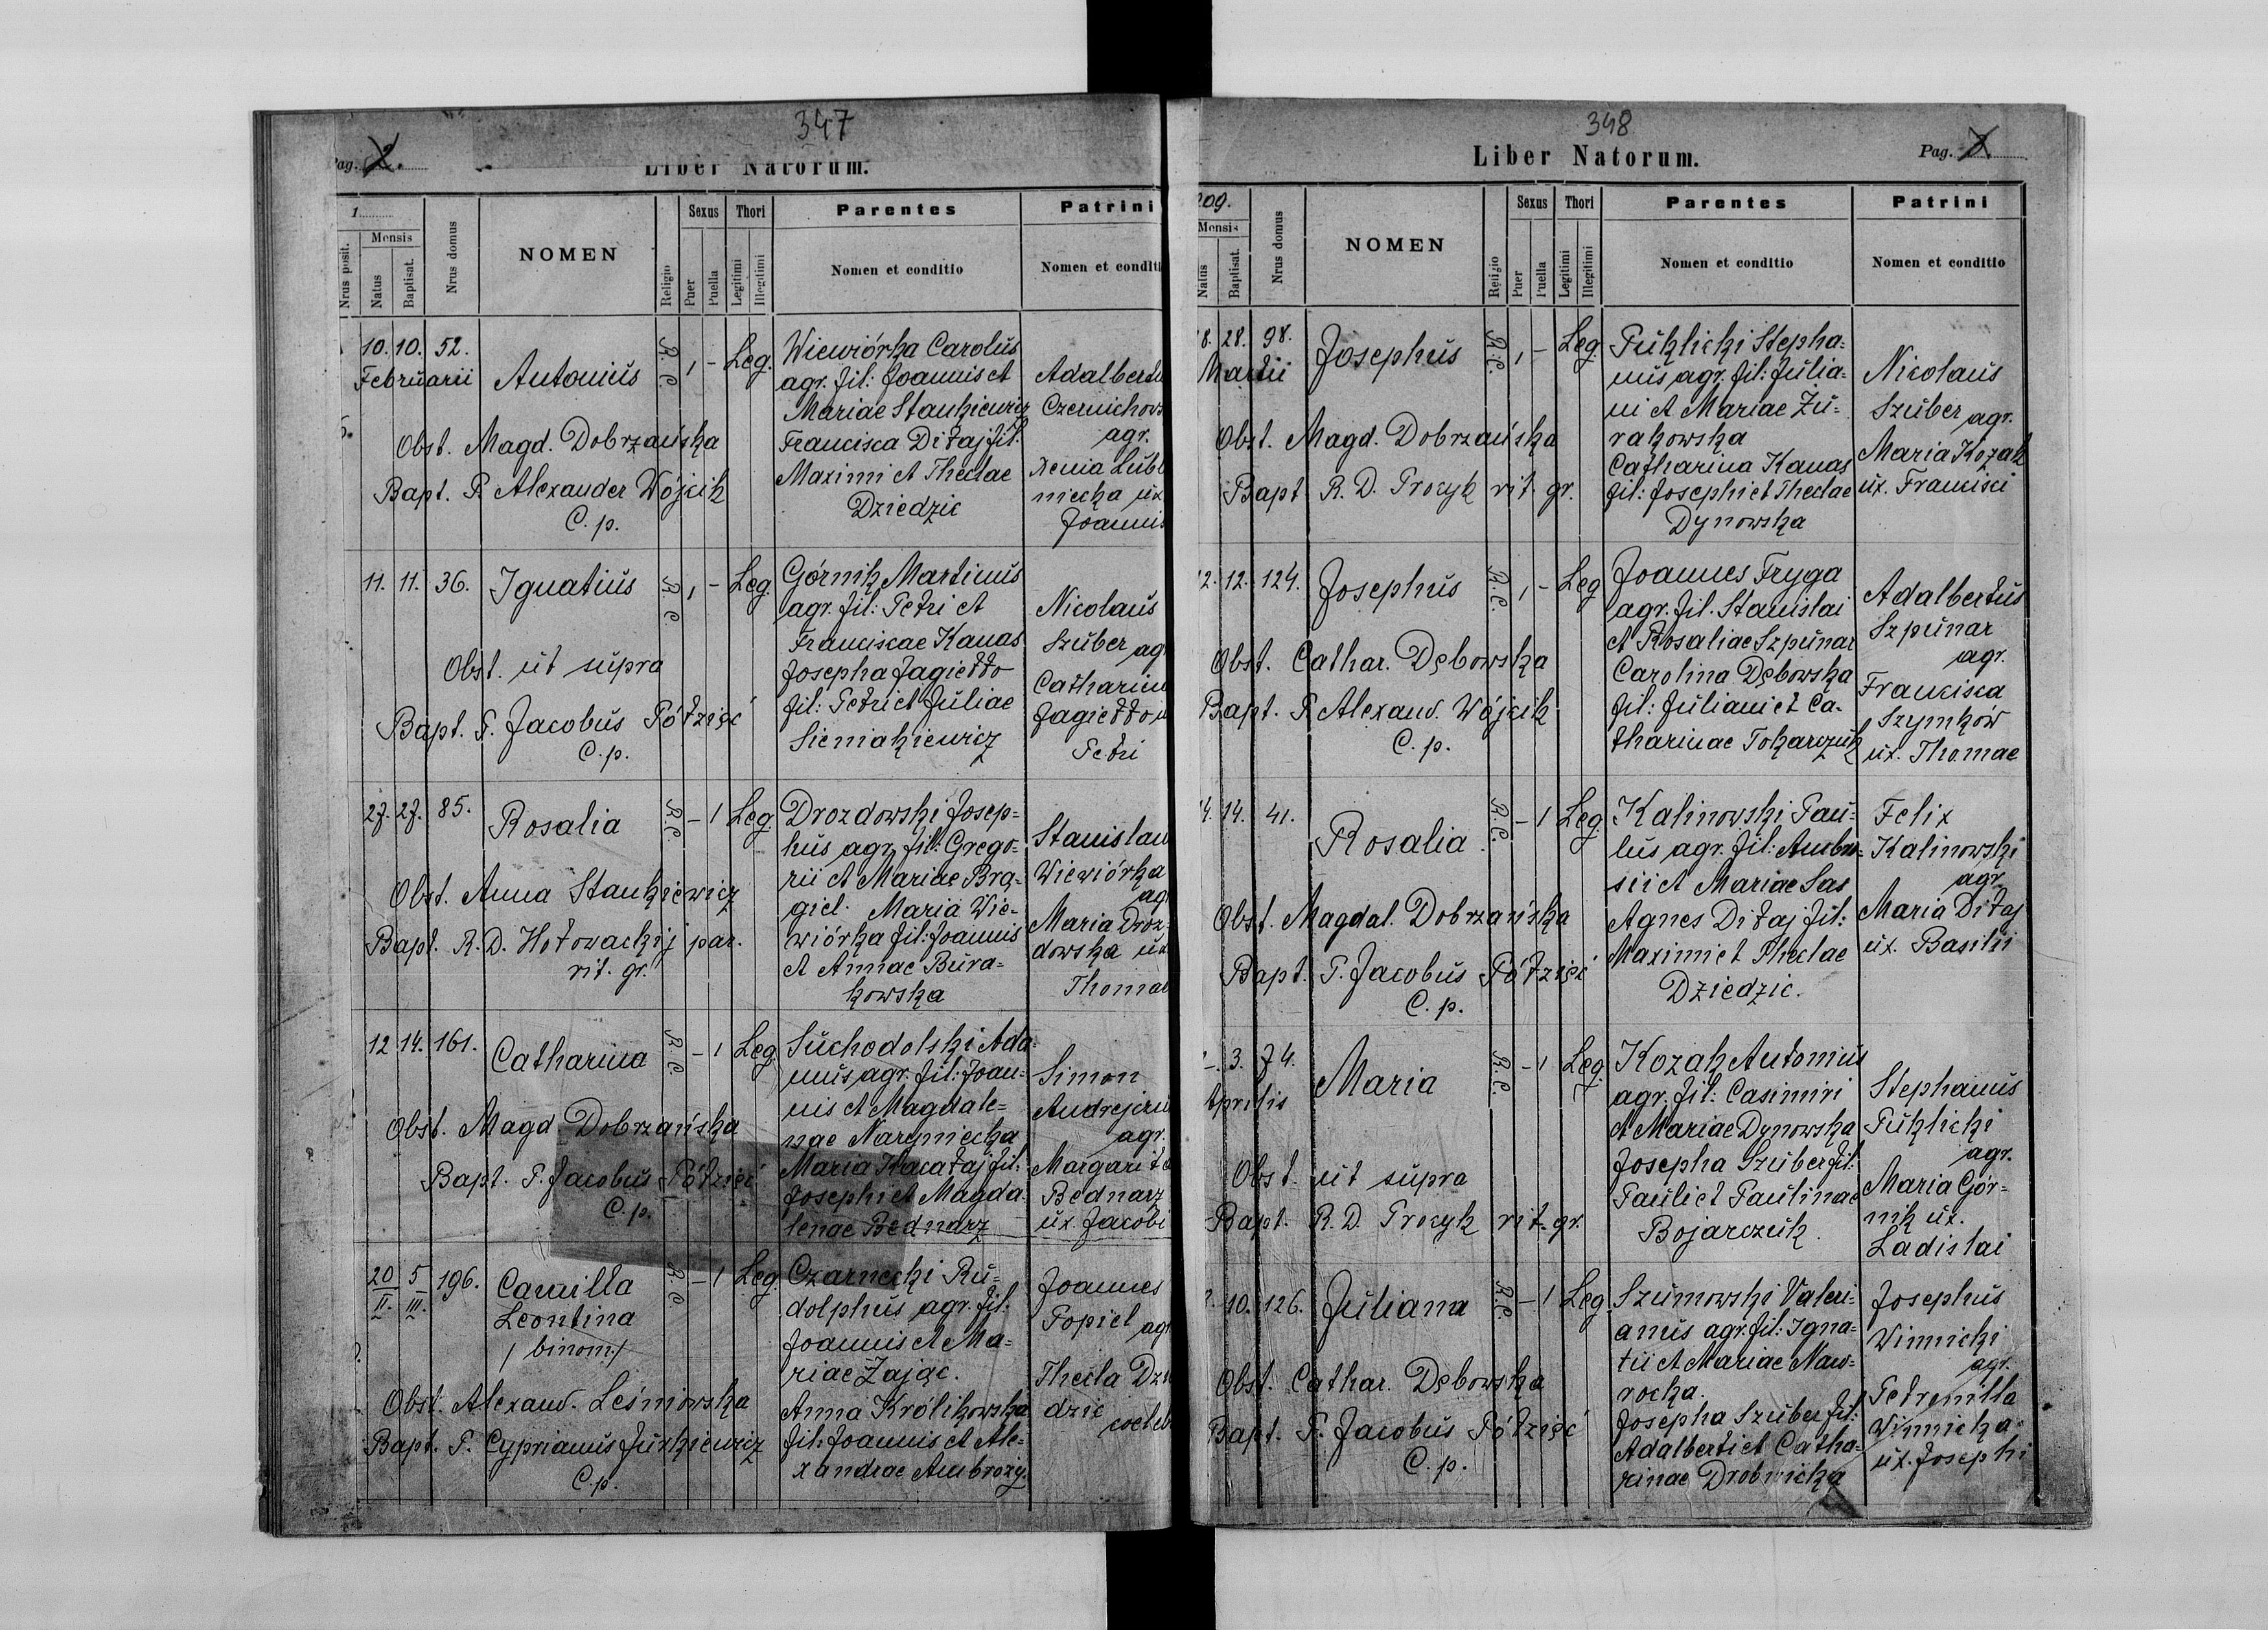 347
Pag. 2.
Liber Natorum.
1
Mensis
Nrus posit.
Natus
Baptisat.
Nrus domus
NOMEN
Religio
Sexus
Puer
Puella
Thori
Legitimi
Illegitimi
Parentes
Nomen et conditio
Patrini
Nomen et conditi
10. 10. 52.
Februarii
Antonius
R. C.
1 - Leg.
Wiewiórka Carolus
agr. fil: Joannis et
Mariae Stankiewicz
Francisca Diłaj fil.
Maximi et Theclae
Dziedzic
Adalbertu
Czernichows
agr.
Xenia Lubl
niecka ux
Joannis
Obst. Magd. Dobrzańska
Bapt. P. Alexander Wójcik
C. p.
11. 11. 36.
Ignatius
R. C.
1 - Leg.
Górnik Martinus
agr. fil: Petri et
Franciscae Kanas
Josepha Jagiełło
fil: Petri et Juliae
Sieniakiewicz
Nicolaus
Szuber ag
Catharin
Jagiełło u
Petri
Obst. ut supra
Bapt. P. Jacobus Półzięć
C. p.
27. 27. 85.
Rosalia
R. C.
- 1 Leg
Drozdowski Josep=
hus agr. fil: Grego=
rii et Mariae Brą=
giel. Maria Wie=
wiórka fil: Joannis
et Annae Bura=
kowska
Stanislau
Wiewiórka
ag
Maria Droz=
dowska ux
Thomae
Obst. Anna Stankiewicz
Bapt. R. D. Hołowackij par.
rit. gr.
12 14. 161.
Catharina
R. C.
- 1 Leg
Suchodolski Ada=
mus agr. fil: Joan=
nis et Magdale=
nae Naryniecka
Maria Kacałaj fil:
Josephi et Magda=
lenae Bednarz
Simon
agr.
Margarita
Bednarz
ux. Jacobi
Obst. Magd Dobrzańska
Bapt. P. Jacobus Półzięć
C. p.
20/II. 5/III. 196.
Camilla
Leontina
/ binom /
R. C.
- 1 Leg
Czarnecki Ru=
dolphus agr. fil:
Joannis et Ma=
riae Zając.
Anna Królikowska
fil: Joannis et Ale=
xandrae Ambroży.
Joannes
Popiel agr
Thecla Dzie
dzic
coeleb
Obst. Alexand. Leśniowska
Bapt. P. Cyprianus Jurkiewicz
C. p.
348
Liber Natorum.
Pag. 3
909.
Mensis
Natus
Baptisat.
Nrus domus
NOMEN
Religio
Sexus
Puer
Puella
Thori
Legitimi
Illegitimi
Parentes
Nomen et conditio
Patrini
Nomen et conditio
8. 28. 98.
Martii
Josephus
R. C.
1 - Leg
Puklicki Stepha=
nus agr. fil: Julia=
ni et Mariae Żu=
rakowska
Catharina Kanas
fil: Josephi et Theclae
Dynowska
Nicolaus
Szuber agr.
Maria Kozak
ux. Francisci
Obst. Magd. Dobrzańska
Bapt R. D. Procyk rit. gr.
12. 12. 124.
Josephus
R. C.
1 - Leg
Joannes Fryga
agr. fil. Stanislai
et Rosaliae Szpunar
Carolina Dębowska
fil: Juliani et Ca=
tharinae Tokarczuk
Adalbertus
Szpunar
agr.
Francisca
Szymków
ux. Thomae
Obst. Cathar. Dębowska
Bapt. P. Alexand. Wójcik
C. p.
14. 14. 41.
Rosalia
R. C.
- 1 Leg
Kalinowski Pau=
lus agr. fil: Ambro=
sii et Mariae Sas
Agnes Diłaj fil:
Maximi et Theclae
Dziedzic.
Felix
Kalinowski
agr.
Maria Diłaj
ux. Basilii
Obst. Magdal. Dobrzańska
Bapt. P. Jacobus Półzięć
C. p.
3. 74.
Aprilis
Maria
R. C.
- 1 Leg.
Kozak Antonius
agr. fil: Casimiri
et Mariae Dynowska
Josepha Szuber fil:
Pauli et Paulinae
Bojarczuk.
Stephanus
Puklicki
agr.
Maria Gór=
nik ux.
Ladislai
Obst. ut supra
Bapt. R. D. Procyk rit. gr.
10. 126.
Juliana
R. C.
- 1 Leg.
Szumowski Valeri=
anus agr. fil: Igna=
tii et Mariae Naw=
rocka.
Josepha Szuber fil:
Adalberti et Catha=
rinae Drobnicka
Josephus
Winnicki
agr.
Petronilla
Winnicka
ux. Josephi
Obst. Cathar. Dębowska
Bapt. P. Jacobus Półzięć
C. p.